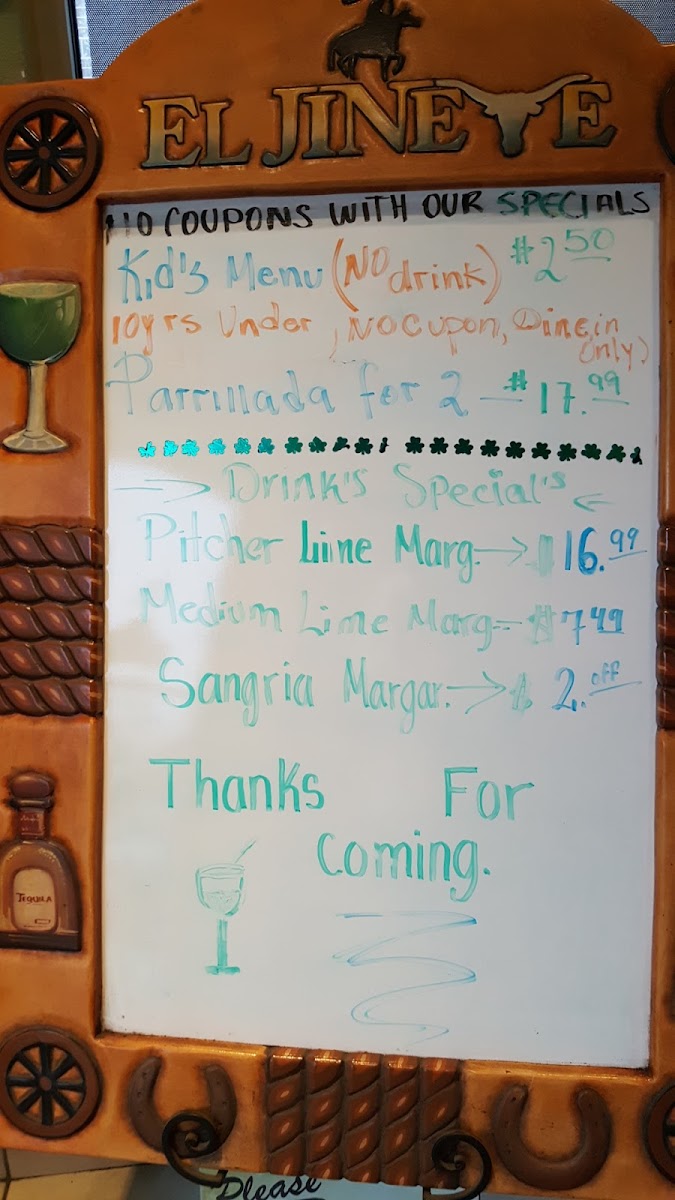 EL JINETE
NO COUPONS WITH OUR SPECIALS
Kid's Menu (NO drink) $2.50
10yrs Under, NO Cupon, Dine in
Only)
Parrillada for 2 - $17.99
Drink's Special's
Pitcher Lime Marg. $16.99
Medium Lime Marg $7.49
Sangria Margar. $2. off
Thanks For
Coming.
TEQUILA
Please